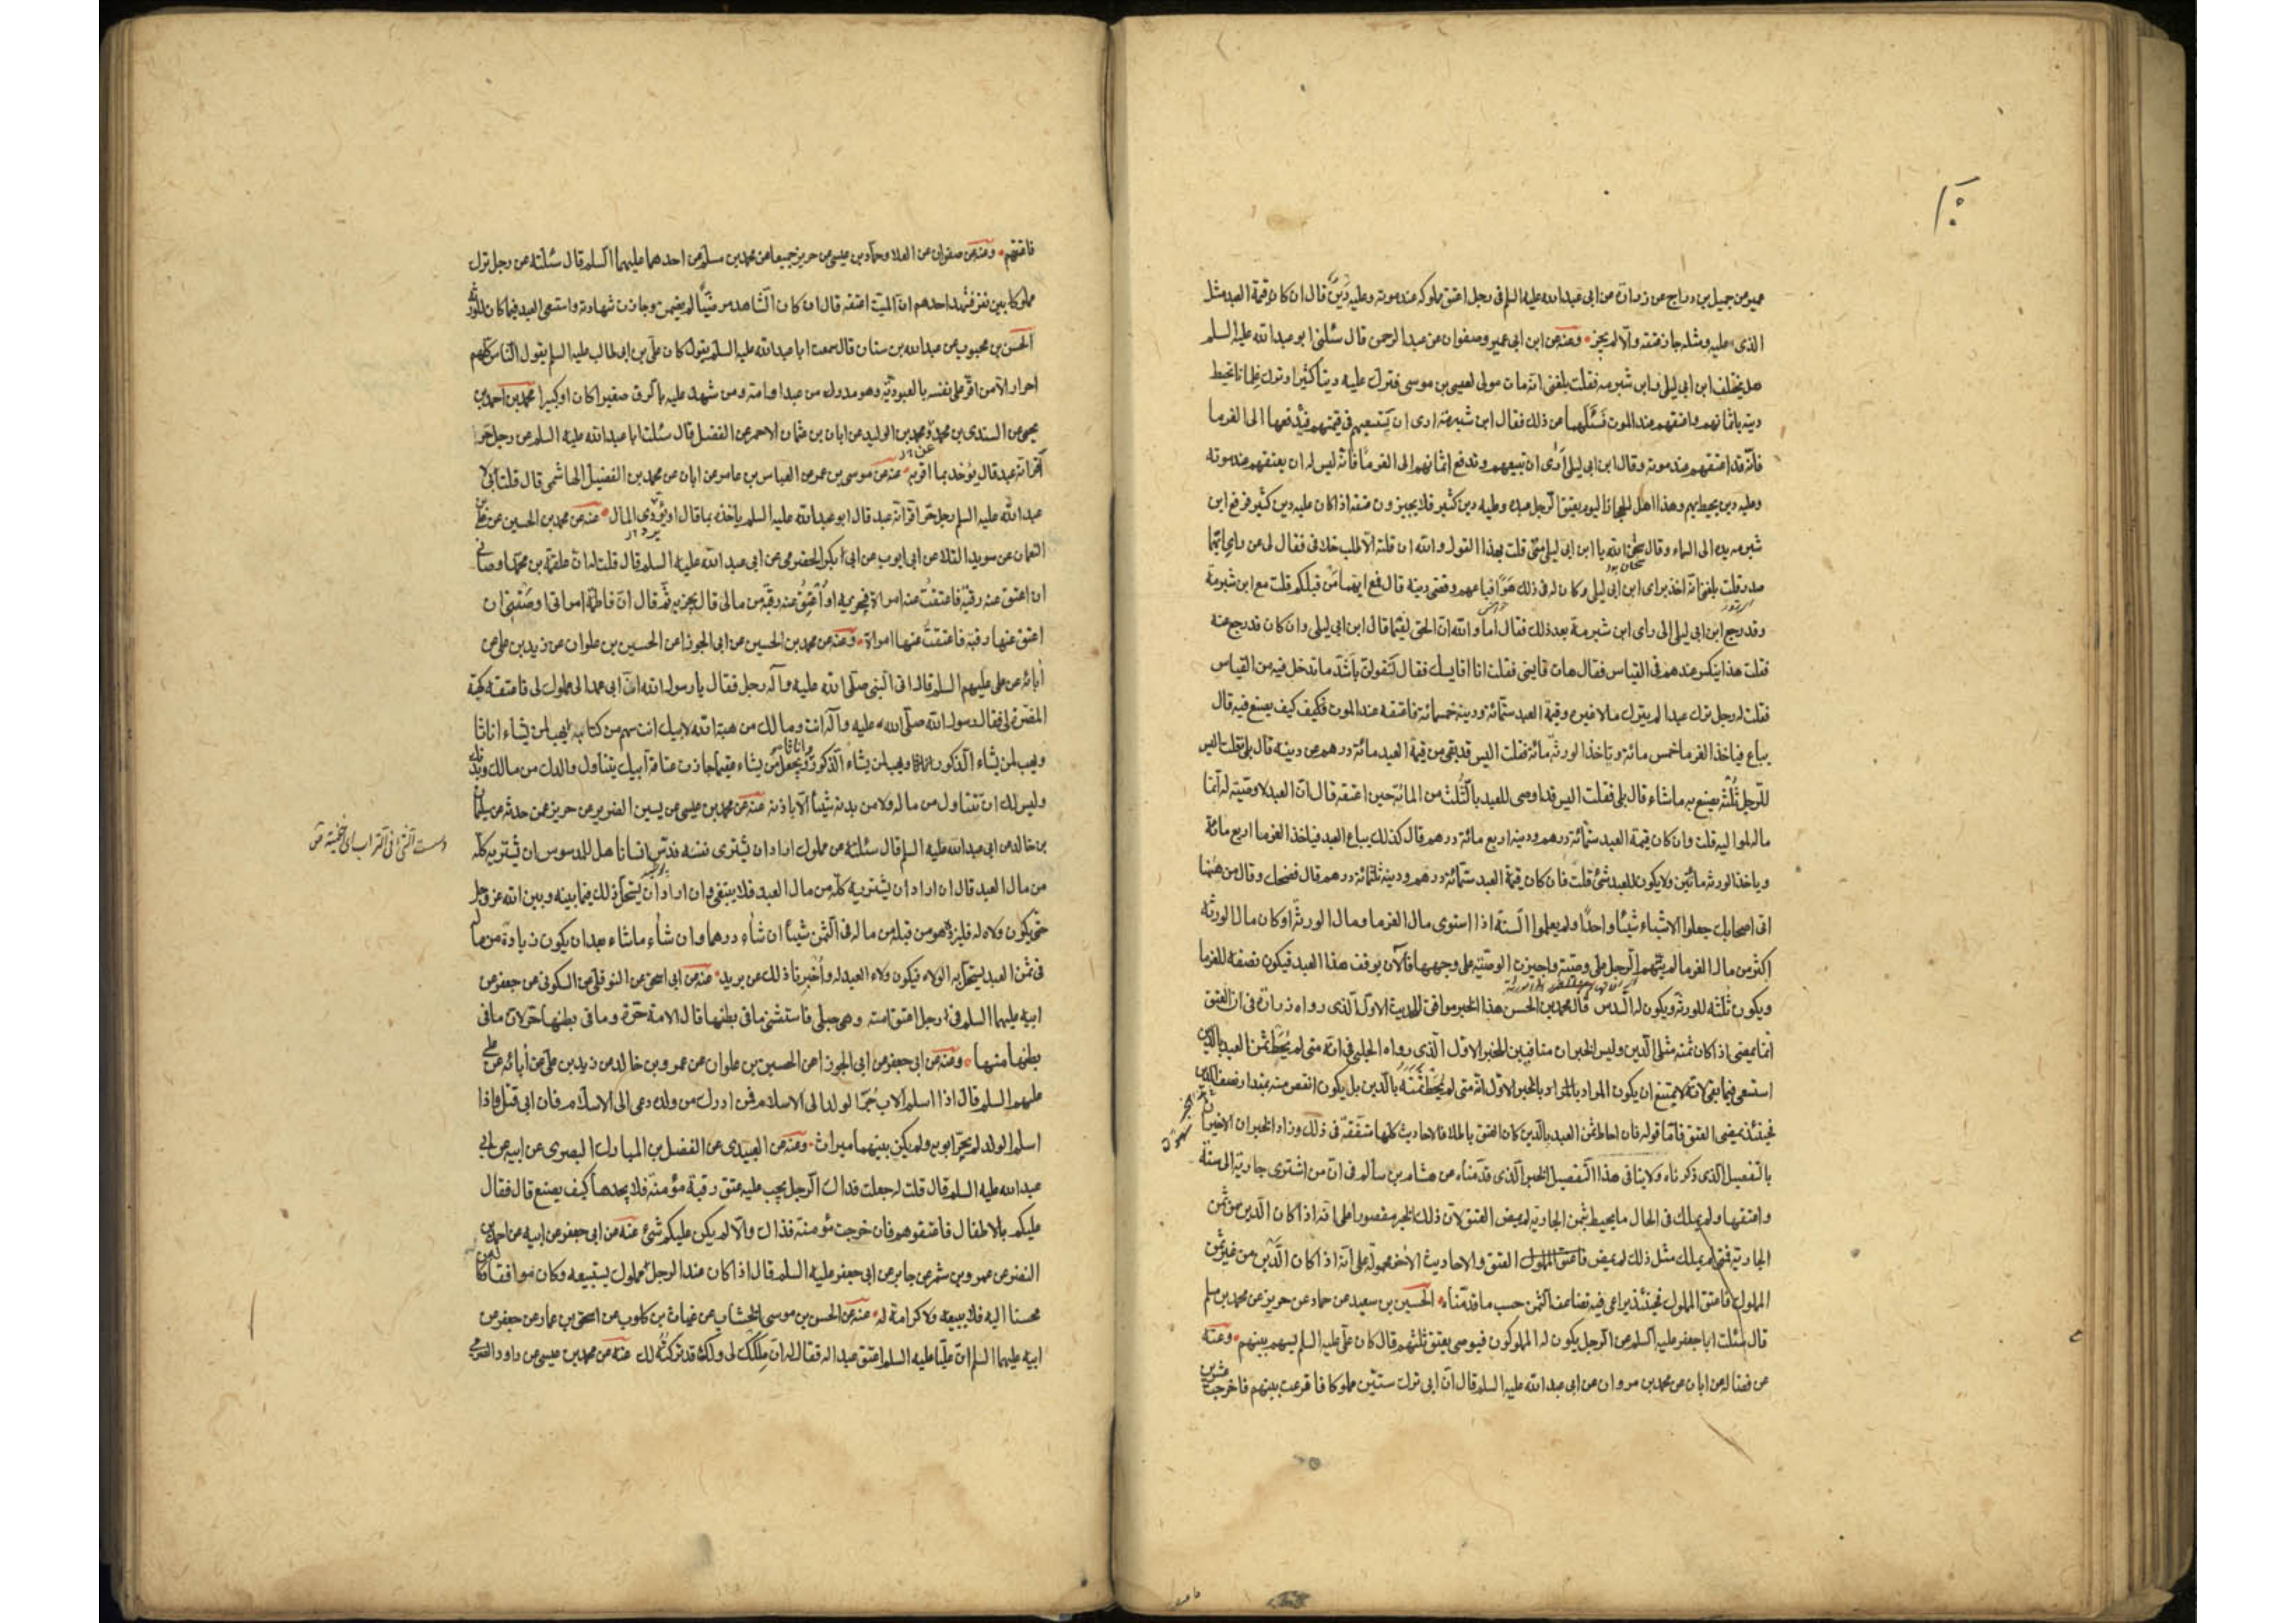 عمير عن جميل بن دراج عن زرارة عن ابى عبد الله عليه السلم فى رجل اعتق مملوكه عند موته وعليه دين قال ان كان قيمة العبد مثل
الذى عليه ومثله جاز عتقه والا لم يجز ومنه عن ابن ابى عمير وصفوان عن عبد الرحمن قال سئلنى ابو عبد الله عليه السلم
هل يختلف ابن ابى ليلى وابن شبرمه فقلت بلغنى انه مات مولى لعيسى بن موسى فترك عليه دينا كثيرا وترك غلمانا يحيط
دينه باثمانهم واعتقهم عند الموت فسئلهما عن ذلك فقال ابن شبرمة ارى ان يستسعيهم فى قيمتهم فيدفعها الى الغرما
فانه قد اعتقهم عند موته وقال ابن ابى ليلى ارى ان تبيعهم وتدفع اثمانهم الى الغرما فانه ليس له ان يعتقهم عند موته
وعليه دين يحيط بهم وهذا اهل الحجاز اليوم يعتق الرجل عبده وعليه دين كثير فلا يجيزون عتقه اذا كان عليه دين كثير فرفع ابن
شبرمه يده الى السماء وقال سبحان الله يا ابن ابى ليلى متى قلت بهذا القول والله ان قلته الا طلب خلافى فقال لى عن راى ايهما
صدر قلت بلغنى انه اخذ براى ابن ابى ليلى وكان له فى ذلك هوى فباعهم وقضى دينه قال فمع ايهما من قبلكم قلت مع ابن شبرمة
وقد رجع ابن ابى ليلى الى راى ابن شبرمة بعد ذلك فقال اما والله ان الحق لفيما قال ابن ابى ليلى وان كان قد رجع عنه
فقلت هذا ينكسر عندهم فى القياس فقال هات قايسنى فقلت انا اقايسك فقال لتقولن باشد ما تدخل فيه من القياس
فقلت له رجل ترك عبدا لم يترك مالا غيره وقيمة العبد ستمائة ودينه خمسمائة فاعتقه عند الموت فكيف كيف يصنع فيه قال
يباع فياخذ الغرما خمس مائة وياخذ الورثه مائة فقلت اليس قد بقى من قيمة العبد مائة درهم عن دينه قال بلى قلت اليس
للرجل ثلثه يصنع به ما شاء قال بلى فقلت اليس قد اوصى للعبد بالثلث من المائة حين اعتقه قال ان العبد لا وصية له انما
ماله لمواليه قلت وان كان قيمة العبد ستمائة درهم ودينه اربع مائة درهم قال كذلك يباع العبد فياخذ الغرما اربع مائة
وياخذ الورثه مائتين ولا يكون للعبد شئ قلت فان كان قيمة العبد ستمائة درهم ودينه ثلثمائة درهم قال فضحك وقال من هيهنا
اتى اصحابك جعلوا الاشياء شيئا واحدا ولم يعلموا السنة اذا استوى مال الغرما ومال الورثة او كان مال الورثة
اكثر من مال الغرما لم يتهم الرجل على وصيته واجيزت الوصية على وجهها فالآن يوقف هذا العبد فيكون نصفه للغرما
ويكون ثلثه للورثة ويكون له السدس قال محمد بن الحسن هذا الخبر موافق للحديث الاول الذى رواه زرارة فى ان العتق
انما يمضى اذا كان ثمنه مثلى الدين وليس الخبران منافيين للخبر الاول الذى رواه الحلبى فى انه متى لم يحط ثمن العبد بالدين
استسعى فيما بقى لانه لا يمتنع ان يكون المراد بالخبر الاول انه متى لم يحط ثمنه بالدين بل يكون انقص منه بمقدار نصف الدين
فحينئذ يمضى العتق فاما قوله فان احاط ثمن العبد بالدين كان العتق باطلا فالاحاديث كلها متفقة فى ذلك وزاد الخبران الاخيران
بالتفصيل الذى ذكرناه ولا ينافى هذا التفصيل الخبر الذى قدمناه عن هشام بن سالم فى ان من اشترى جارية الى سنة
واعتقها ولم يملك فى الحال ما يحيط بثمن الجارية لم يمض العتق لان ذلك الخبر مقصور على انه اذا كان الدين من ثمن
الجارية فمتى لم يملك مثل ذلك لم يمض العتق والاحاديث الاخر محمولة على انه اذا كان الدين من غير ثمن
المملوك فاعتق المملوك فحينئذ يراعى فيه تضاعف الثمن حسب ما قدمناه الحسين بن سعيد عن حماد عن حريز عن محمد بن مسلم
قال سئلت ابا جعفر عليه السلم عن الرجل يكون له المملوكون فيوصى بعتق ثلثهم قال كان على عليه السلم يسهم بينهم ومنه
عن فضاله عن ابان عن محمد بن مروان عن ابى عبد الله عليه السلم قال ان ابى ترك ستين مملوكا فاقرعت بينهم فاخرجت عشرين
فاعتقتهم ومنه عن صفوان عن العلا وحماد بن عيسى عن حريز جميعا عن محمد بن مسلم عن احدهما عليهما السلم قال سئلته عن رجل ترك
مملوكا بين نفر فشهد احدهم ان الميت اعتقه قال ان كان الشاهد مرضيا لم يضمن وجازت شهادته واستسعى العبد فيما كان للورثه
الحسن بن محبوب عن عبد الله بن سنان قال سمعت ابا عبد الله عليه السلم يقول كان على بن ابى طالب عليه السلم يقول الناس كلهم
احرار الا من اقر على نفسه بالعبودية وهو مدرك من عبد او امة ومن شهد عليه بالرق صغيرا كان او كبيرا محمد بن احمد بن
يحيى عن السندى بن محمد ومحمد بن الوليد عن ابان بن عثمان الاحمر عن الفضل قال سئلت ابا عبد الله عليه السلم عن رجل حر
اقر انه عبد قال يؤخذ بما اقر به عنه عن موسى بن عمر عن العباس بن عامر عن ابان عن محمد بن الفضيل الهاشمى قال قلت لابى
عبد الله عليه السلم رجل حر اقر انه عبد قال ابو عبد الله عليه السلم ياخذه بما قال او يؤدى المال عنه عن محمد بن الحسين عن على بن
النعمان عن سويد القلا عن ابى ايوب عن ابى بكر الحضرمى عن ابى عبد الله عليه السلم قال قلت له ان علقمة بن محمد اوصانى
ان اعتق عنه رقبة فاعتقت عنه امراة افتجزيه او اعتق عنه رقبة من مالى قال يجزيه ثم قال ان فاطمة امراتى اوصتنى ان
اعتق عنها رقبة فاعتقت عنها امراة ومنه عن محمد بن الحسين عن ابى الجوزا عن الحسين بن علوان عن زيد بن على عن
آبائه عن على عليهم السلم قال اتى النبى صلى الله عليه وآله رجل فقال يا رسول الله ان ابى عمد الى مملوك لى فاعتقه كهيئة
المضرة لى فقال رسول الله صلى الله عليه وآله انت ومالك من هبة الله لابيك انت سهم من كنانته يهب لمن يشاء اناثا
ويهب لمن يشاء الذكور ويجعل من يشاء عقيما جازت عتاقة ابيك يتناول والدك من مالك وبدنك
وليس لك ان تتناول من ماله ولا من بدنه شيئا الا باذنه عنه عن محمد بن عيسى عن يسين الضرير عن حريز عمن حدثه عن سليمان
بن خالد عن ابى عبد الله عليه السلم قال سئلته عن مملوك اراد ان يشترى نفسه فدس انسانا هل للمدسوس ان يشتريه كله
دست الشئ فى التراب اى اخفيته فيه
من مال العبد قال ان اراد ان يشتريه كله من مال العبد فلا ينبغى وان اراد ان يستحل ذلك فيما بينه وبين الله عز وجل
حتى يكون ولاه له فليزد هو من قبله من ماله فى الثمن شيئا ان شاء درهما وان شاء ما شاء بعد ان يكون زيادة من ماله
فى ثمن العبد يستحل به الولاء فيكون ولاء العبد له واخبرنا ذلك عن بريد عنه عن ابى اسحق عن النوفلى عن السكونى عن جعفر عن
ابيه عليهما السلم فى رجل اعتق امته وهى حبلى فاستثنى ما فى بطنها قال الامة حرة وما فى بطنها حر لان ما فى
بطنها منها ومنه عن ابى جعفر عن ابى الجوزا عن الحسين بن علوان عن عمرو بن خالد عن زيد بن على عن آبائه عن على
عليهم السلم قال اذا اسلم الاب جر الولد الى الاسلام فمن ادرك من ولده دعى الى الاسلام فان ابى قتل واذا
اسلم الولد لم يجر ابويه ولم يكن بينهما ميراث ومنه عن العبيدى عن الفضل بن المبارك البصرى عن ابيه عن ابى
عبد الله عليه السلم قال قلت له جعلت فداك الرجل يجب عليه عتق رقبة مؤمنة فلا يجدها كيف يصنع قال فقال
عليكم بالاطفال فاعتقوهم فان خرجت مؤمنة فذاك والا لم يكن عليكم شئ عنه عن ابى جعفر عن ابيه عن احمد بن
النضر عن عمرو بن شمر عن جابر عن ابى جعفر عليه السلم قال اذا كان عند الرجل مملوك يستبيعه وكان موافقا
محسنا اليه فلا يبيعه ولا كرامة له عنه عن الحسن بن موسى الخشاب عن غياث بن كلوب عن اسحق بن عمار عن جعفر عن
ابيه عليهما السلم ان عليا عليه السلم اعتق عبدا له فقال له ان ملكك لى ولكن قد تركته لك عنه عن محمد بن عيسى عن داود الصرمى